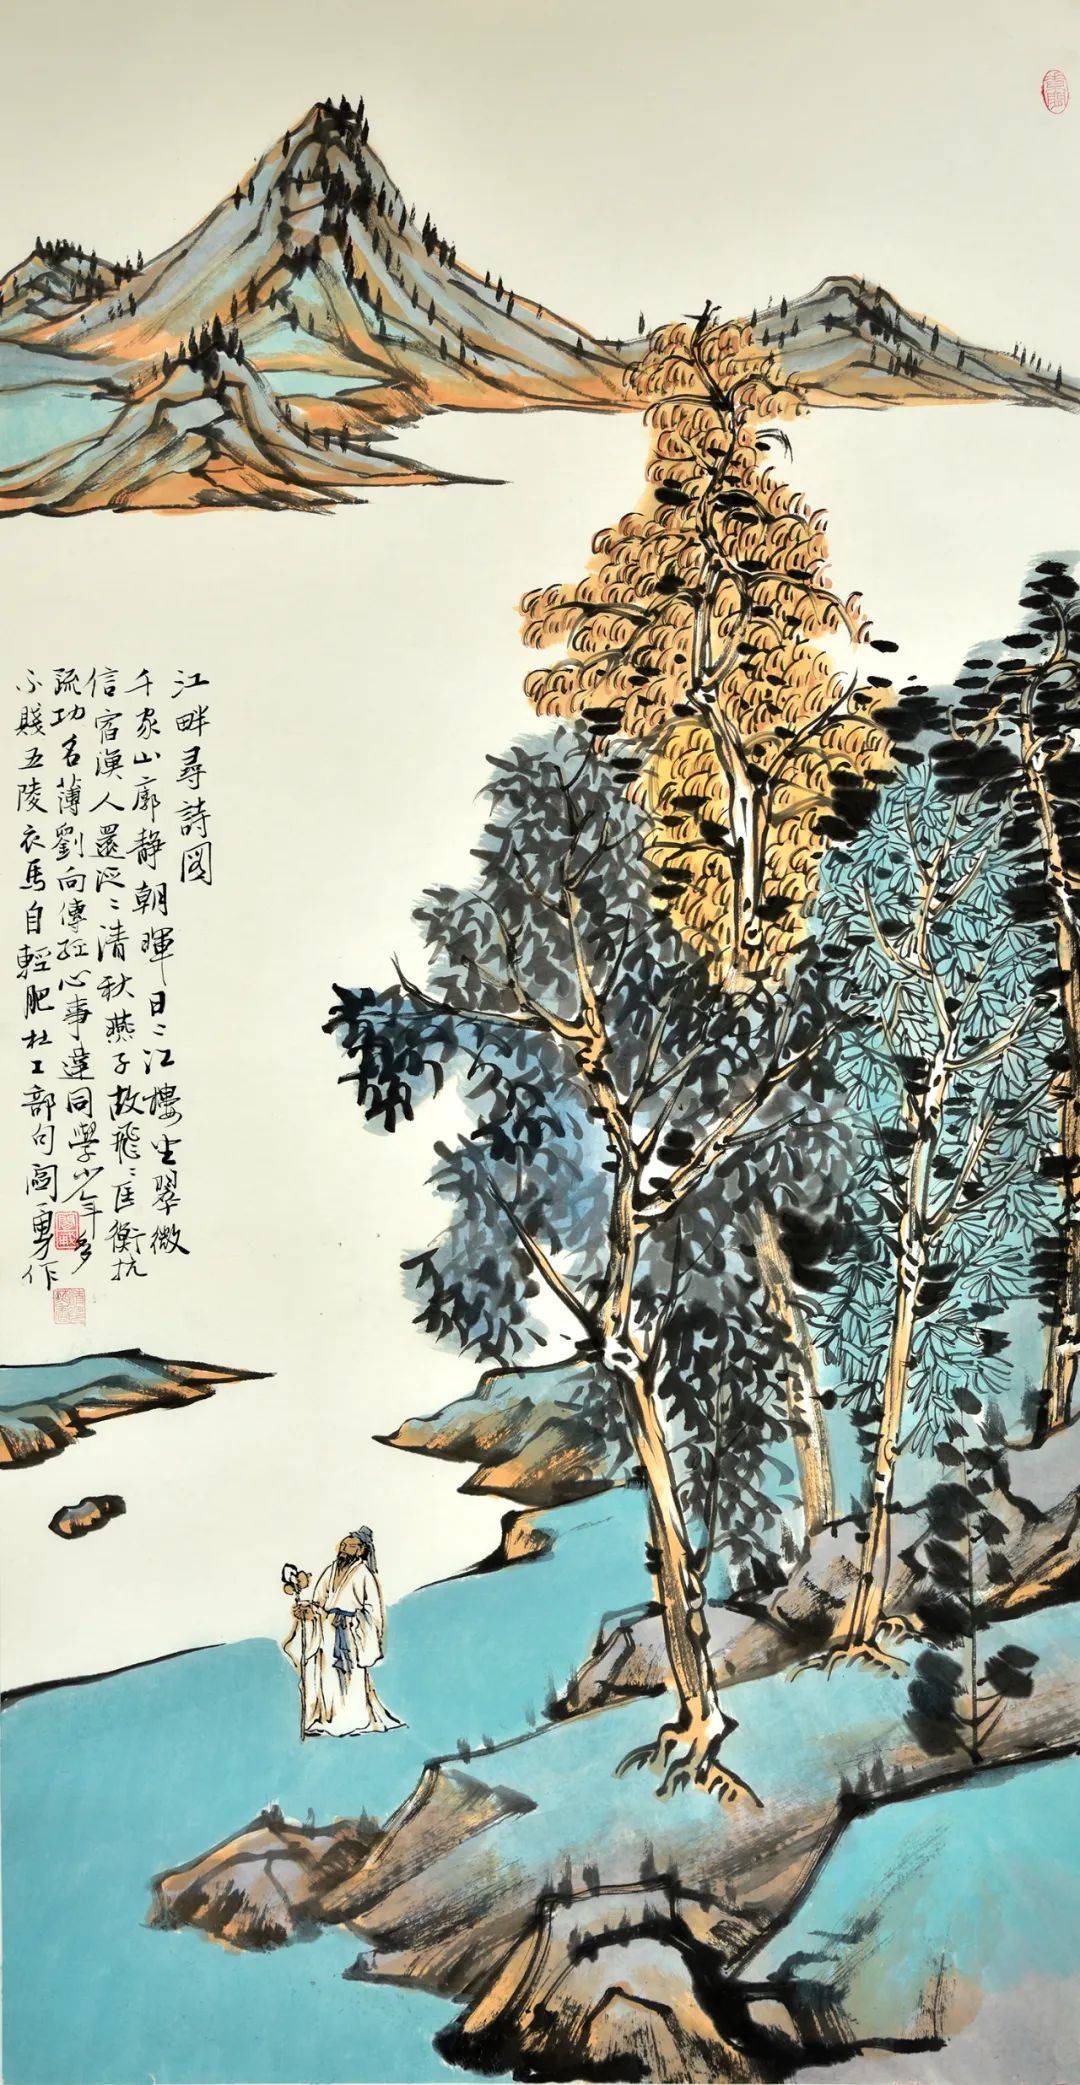 江畔尋詩圖
千家山廓静朝暉日〻江樓坐翠微
信宿漁人還泛〻清秋燕子故飛〻匡衡抗
疏功名薄劉向傳經心事違同學少年多
不賤五陵衣馬自輕肥杜工部句閻勇作